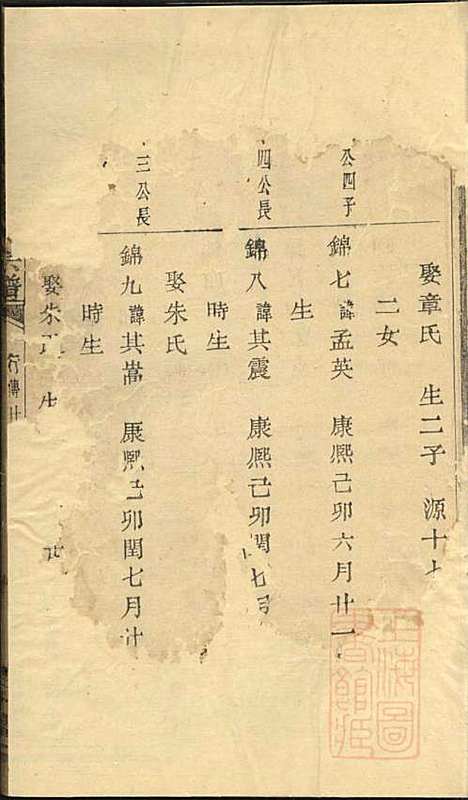 娶章氏 生二子 源十
二女
公四子
錦七諱孟英 康熙己卯六月廿一
生
四公長
錦八諱其震 康熙己卯閏七月
時生
娶朱氏
三公長
錦九諱其嵩 康熙己卯閏七月廿
時生
娶朱 生
譜
傳
上海圖書館藏